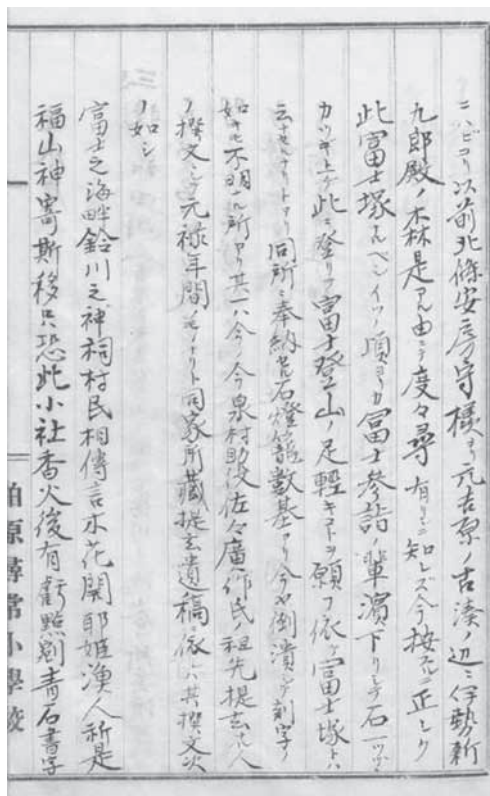 ニハビコリ以前北條安房守様ヨリ元吉原ノ古湊ノ辺ニ伊勢新
九郎殿ノ森是アル由ニテ度々尋有リシニ知レズ今按スルニ正シク
此富士塚ナルベシイツノ頃ヨリカ富士参詣ノ輩濱ニ下リシテ石一ツヅヽ
カツギ上ゲ此ニ登リテ富士登山ノ足輕キコトヲ願フ依テ富士塚ト
云ナセルナリトアリ同所ニ奉納セル石燈籠数基アリ今ヤ倒潰シテ刻字ノ
如キモ不明ノ所アリ其一ハ今ノ今泉村助役佐々廣作氏ノ祖先提玄ナル人
ノ撰文ニシテ元禄年間ノモノナリト同家所蔵提玄遺稿ニ依レハ其撰文次
ノ如シ
富士之海畔鈴川之神祠村民相傳言木花開耶姫漁人祈是
福山神寄斯移只恐此小社香火後有虧點剔青石書字
柏原尋常小學校